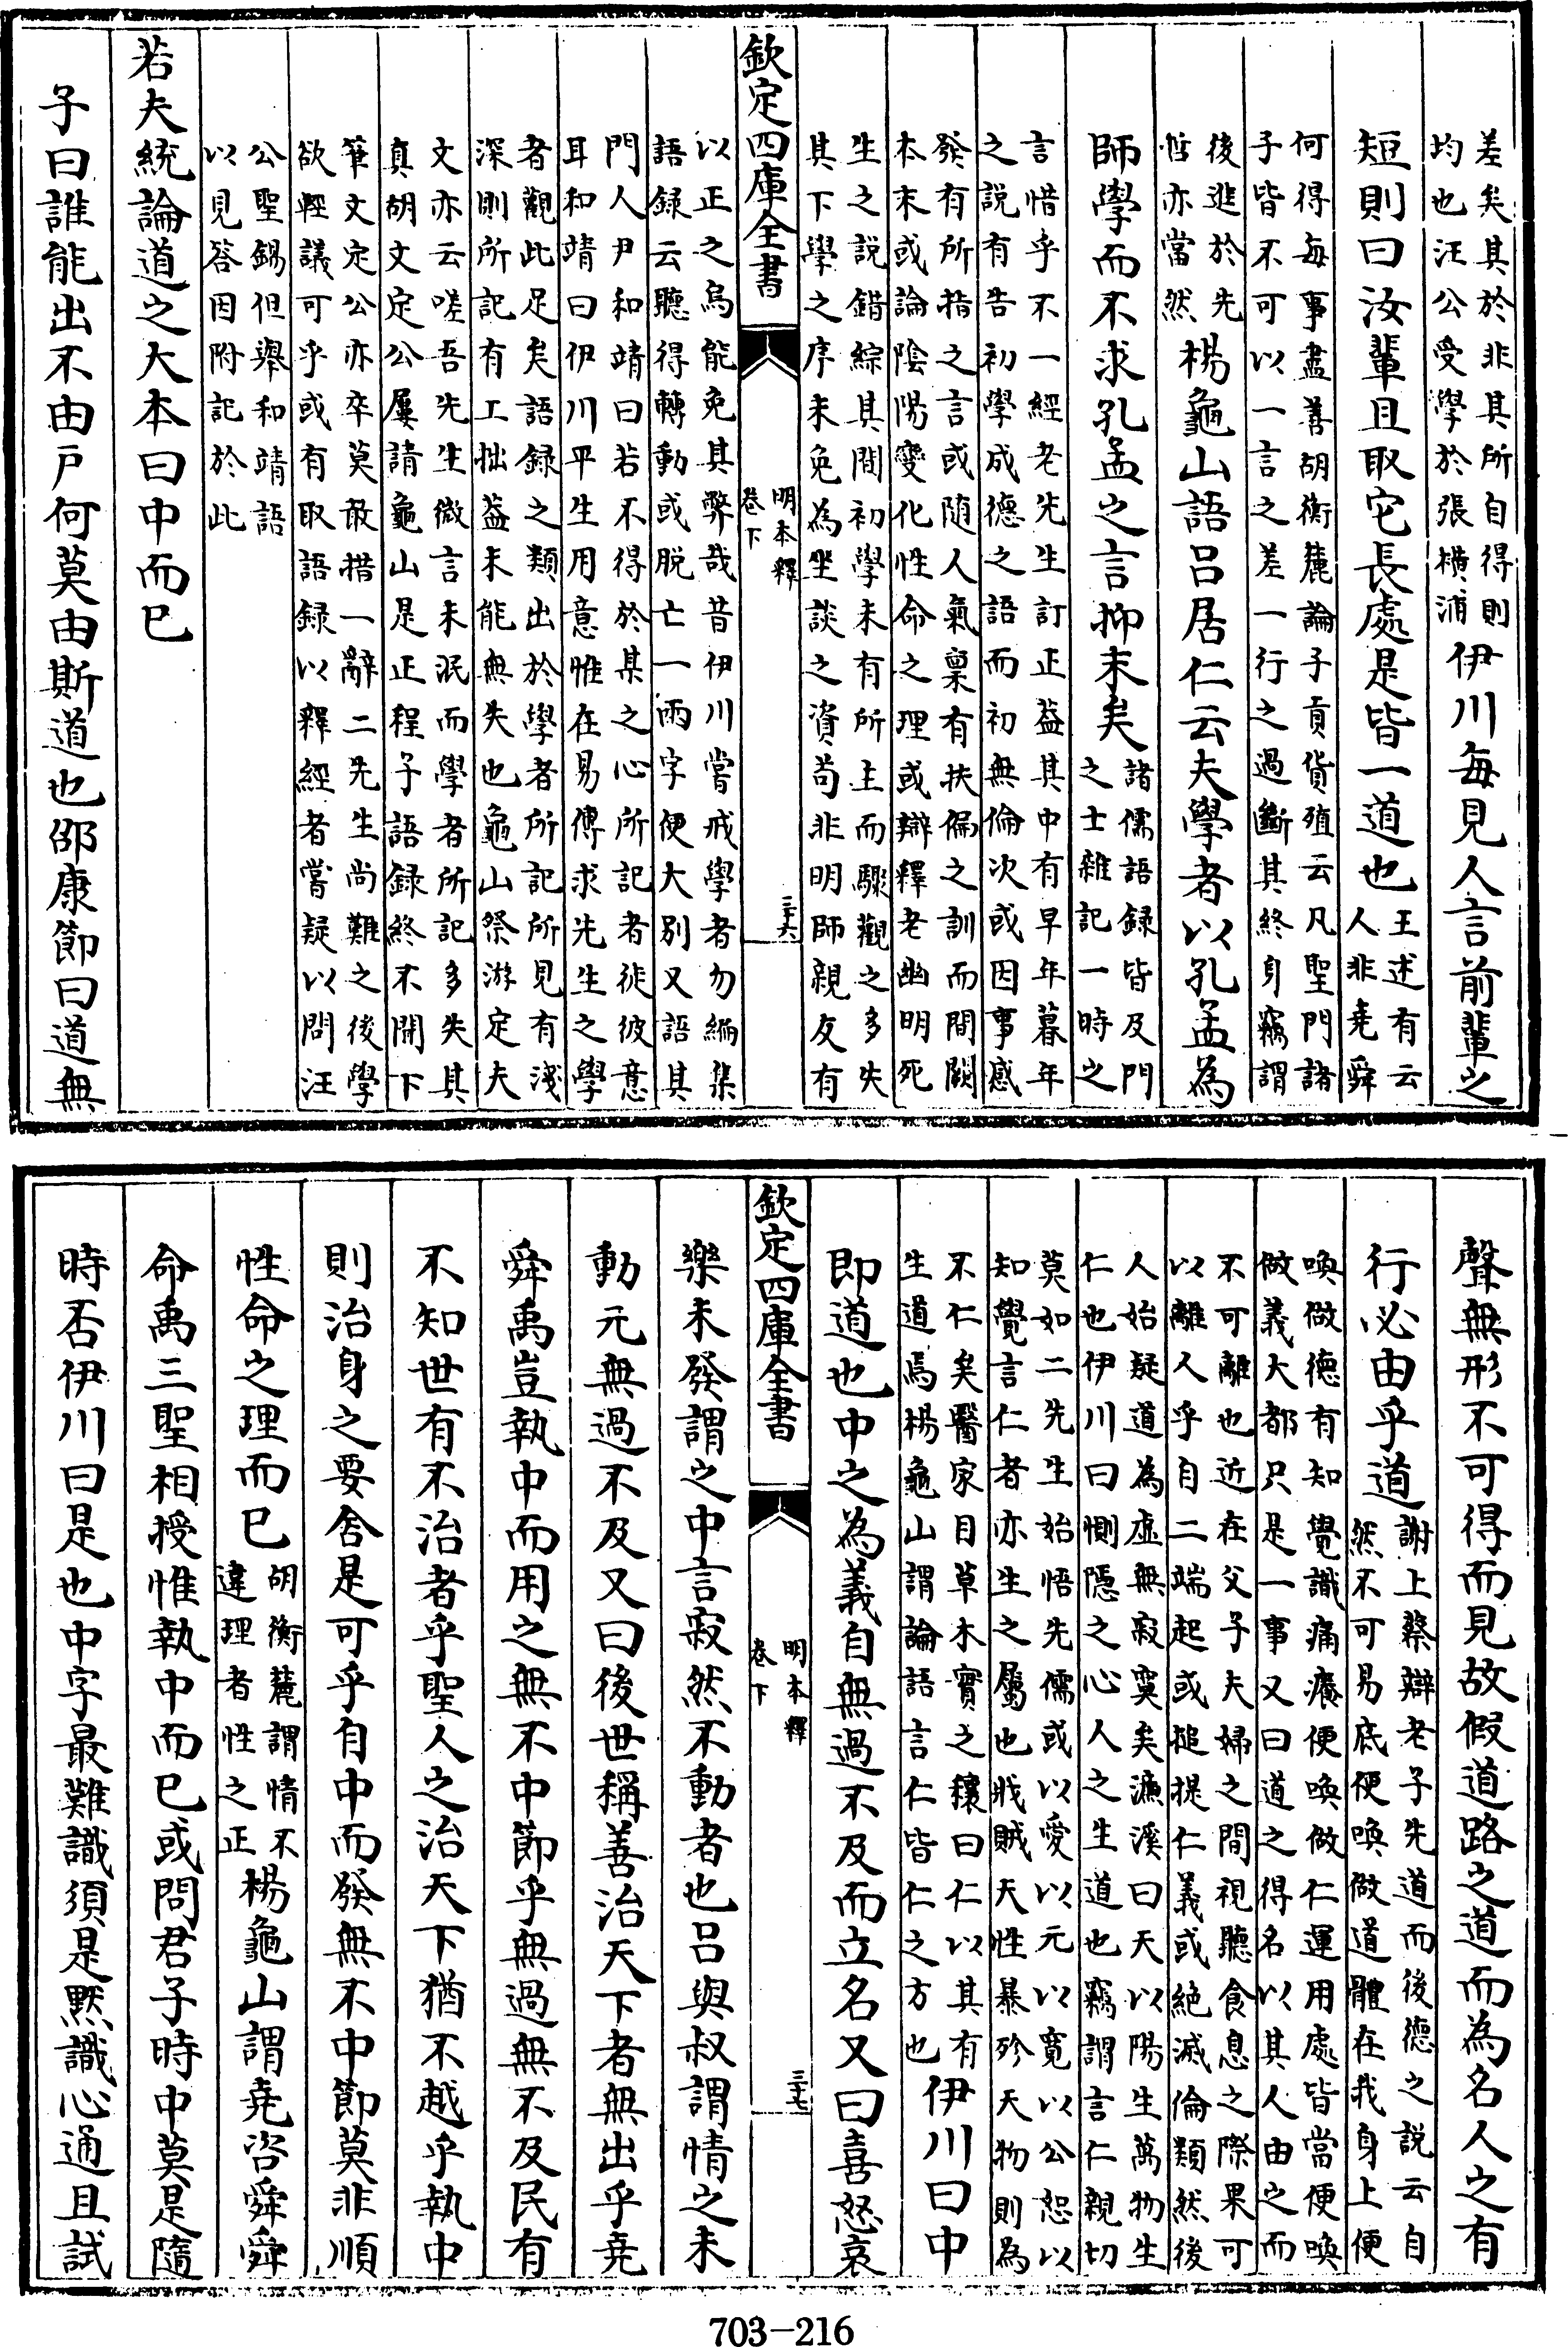 差矣其於非其所自得則
均也汪公受學於張橫浦
伊川每見人言前輩之
短則曰汝輩且取它長處是皆一道也
王述有云
人非堯舜
何得每事盡善胡衡麓論子貢貨殖云凡聖門諸
子皆不可以一言之差一行之過斷其終身竊謂
後進於先
哲亦當然
楊龜山語呂居仁云夫學者以孔孟為
師學而不求孔孟之言抑末矣
諸儒語録皆及門
之士雜記一時之
言惜乎不一經老先生訂正蓋其中有早年暮年
之説有告初學成德之語而初無倫次或因事感
發有所指之言或隨人氣稟有扶偏之訓而間闕
本末或論陰陽變化性命之理或辯釋老幽明死
生之説錯綜其間初學未有所主而驟觀之多失
其下學之序未免為坐談之資苟非明師親友有
欽定四庫全書
明本釋
卷下
三十六
以正之烏能免其弊哉昔伊川嘗戒學者勿編集
語録云聽得轉動或脱亡一兩字便大別又語其
門人尹和靖曰若不得於某之心所記者徒彼意
耳和靖曰伊川平生用意惟在易傳求先生之學
者觀此足矣語録之類出於學者所記所見有淺
深則所記有工拙蓋未能無失也龜山祭游定夫
文亦云嗟吾先生微言未泯而學者所記多失其
真胡文定公屢請龜山是正程子語録終不開下
筆文定公亦卒莫敢措一辭二先生尚難之後學
欲輕議可乎或有取語録以釋經者嘗疑以問汪
公聖錫但舉和靖語
以見答因附記於此
若夫統論道之大本曰中而已
子曰誰能出不由戸何莫由斯道也邵康節曰道無
聲無形不可得而見故假道路之道而為名人之有
行必由乎道
謝上蔡辯老子先道而後德之説云自
然不可易底便喚做道體在我身上便
喚做德有知覺識痛癢便喚做仁運用處皆當便喚
做義大都只是一事又曰道之得名以其人由之而
不可離也近在父子夫婦之間視聽食息之際果可
以離人乎自二端起或搥提仁義或絶滅倫類然後
人始疑道為虛無寂寞矣濂溪曰天以陽生萬物生
仁也伊川曰惻隱之心人之生道也竊謂言仁親切
莫如二先生始悟先儒或以愛以元以寛以公恕以
知覺言仁者亦生之屬也戕賊天性暴殄天物則為
不仁矣醫家目草木實之穰曰仁以其有
生道焉楊龜山謂論語言仁皆仁之方也
伊川曰中
即道也中之為義自無過不及而立名又曰喜怒哀
欽定四庫全書
明本釋
卷下
三十七
樂未發謂之中言寂然不動者也呂與叔謂情之未
動元無過不及又曰後世稱善治天下者無出乎堯
舜禹豈執中而用之無不中節乎無過無不及民有
不知世有不治者乎聖人之治天下猶不越乎執中
則治身之要舍是可乎自中而發無不中節莫非順
性命之理而已
胡衡麓謂情不
違理者性之正
楊龜山謂堯咨舜舜
命禹三聖相授惟執中而已或問君子時中莫是隨
時否伊川曰是也中字最難識須是黙識心通且試
703-216